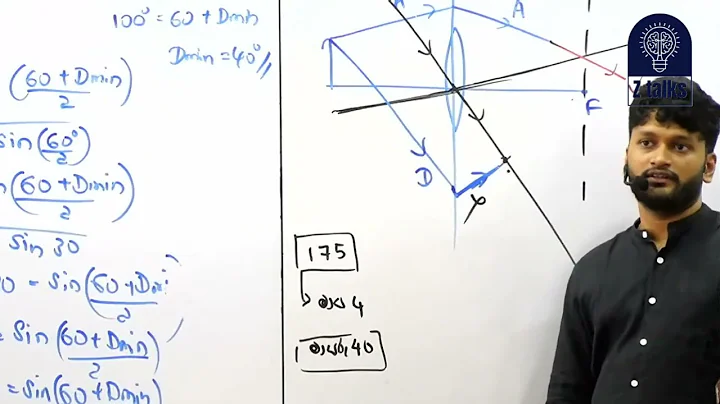 100° = 60 + Dmin
Dmin = 40°//
(60 + Dmin)
2
sin (60°)
2
(60 + Dmin)
2
sin 30
= sin (60 + Dmi
2
= sin (60 + Dmin)
2
= sin (60 + Dmin)
A
F
D
175
4
40
Z talks